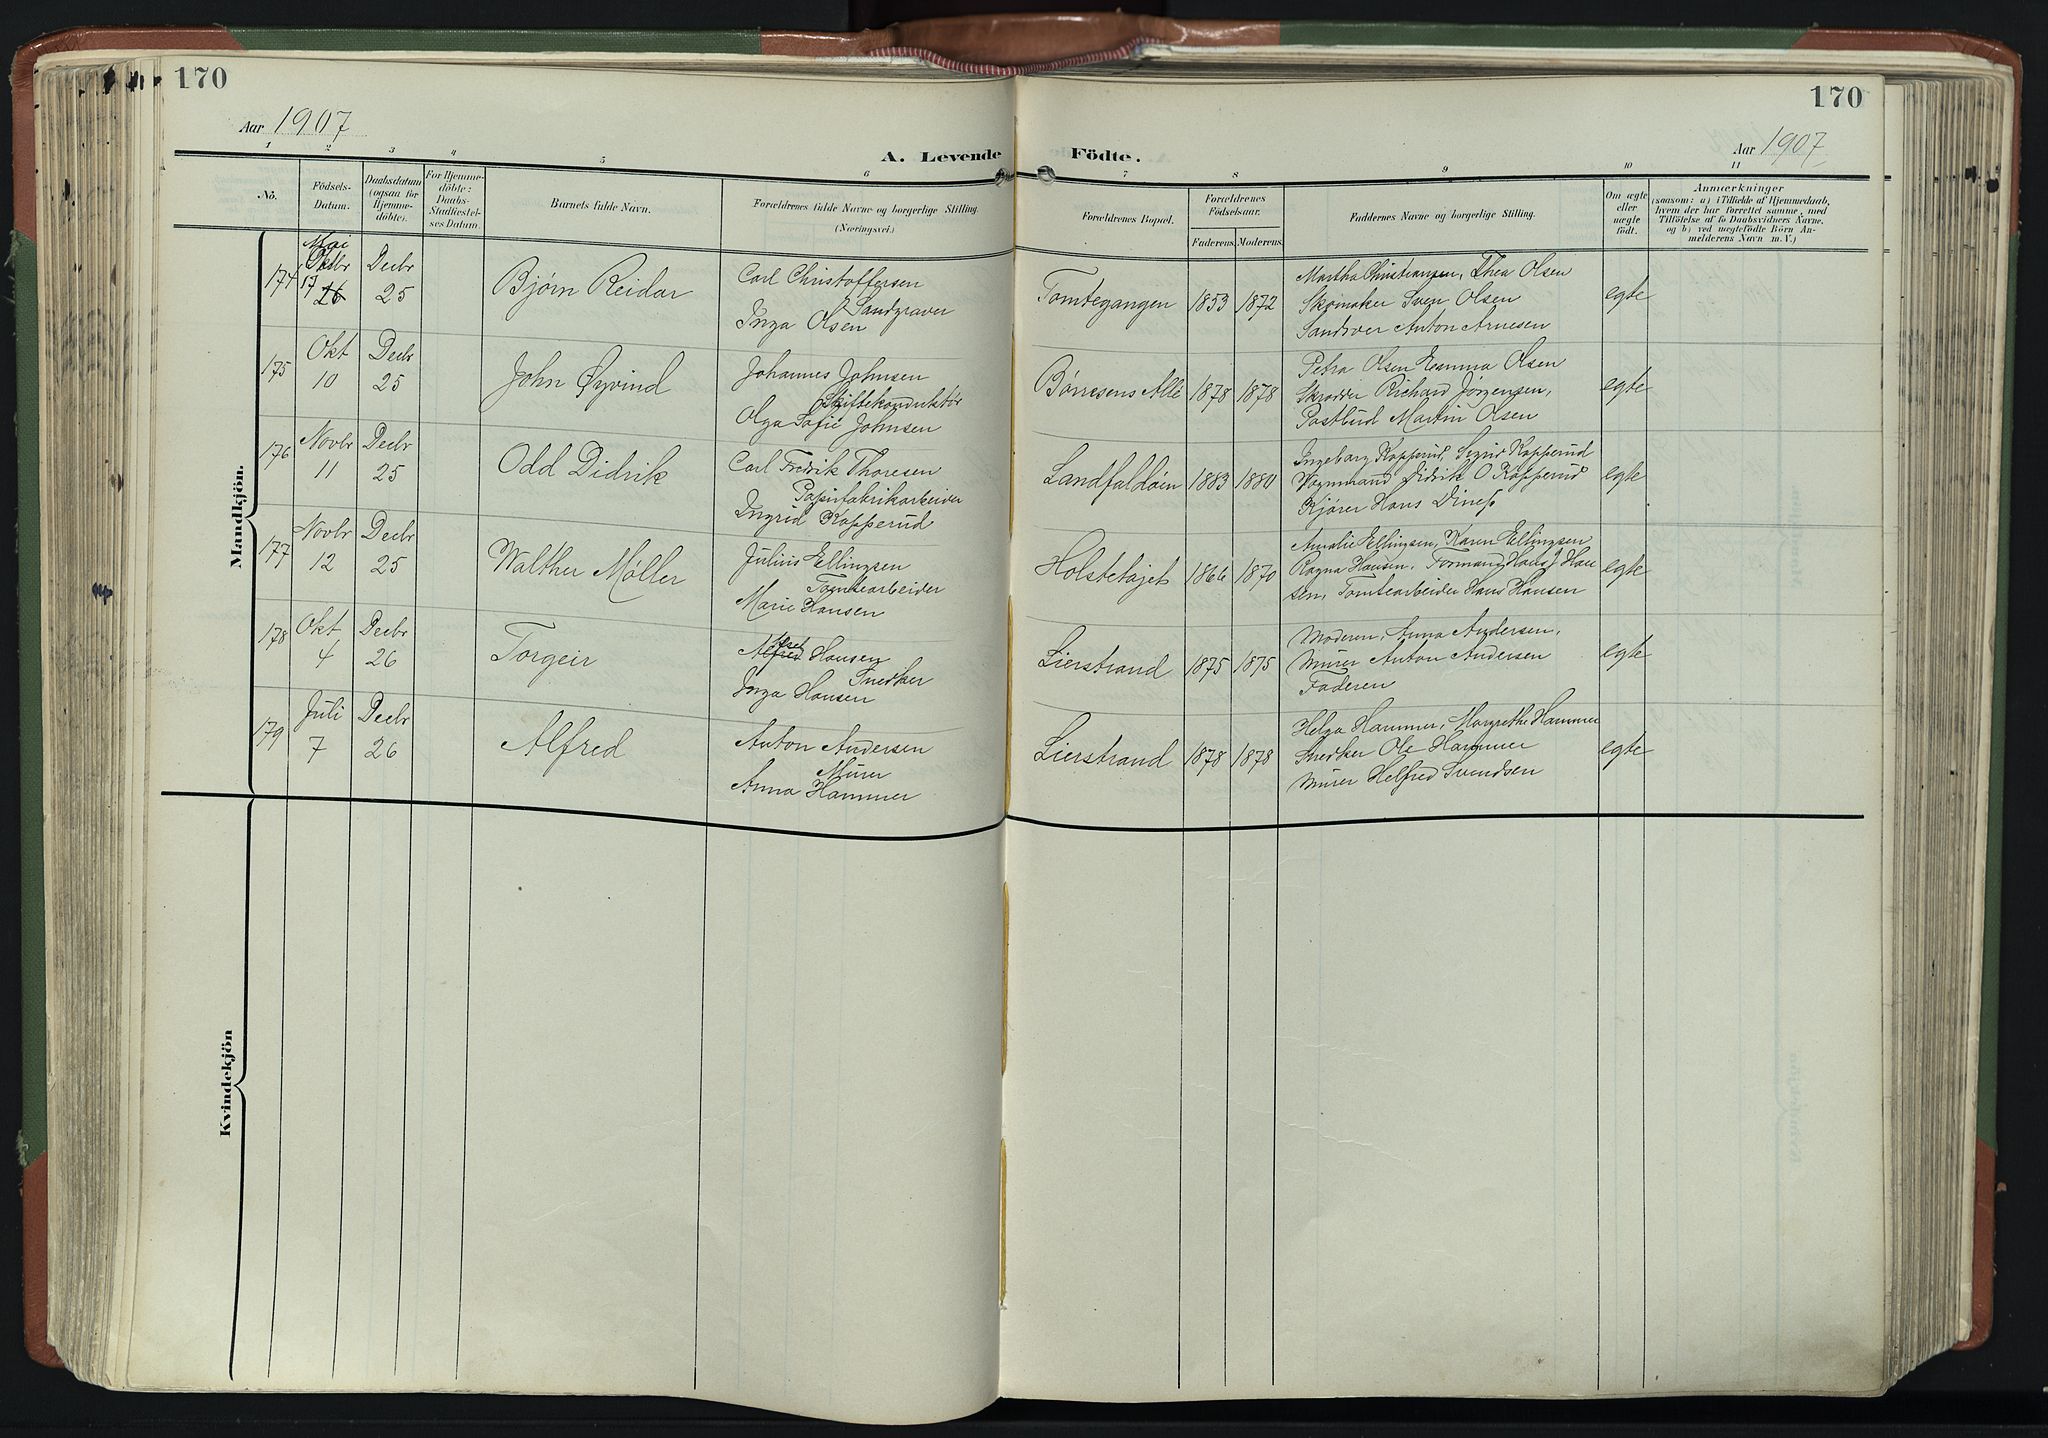 170
170
Aar 1907
Aar 1907
A. Levende Födte.
1 2 3 4 5 6 7 8 9 10 11
No.
Födsels-
Datum.
Daabsdatum
(ogsaa for
Hjemme-
döbte).
For Hjemme-
döbte:
Daabs-
Stadfæstel-
ses Datum.
Barnets fulde Navn.
Forældrenes fulde Navne og borgerlige Stilling.
(Næringsvei.)
Forældrenes Bopæl.
Forældrenes
Födselsaar.
Faderens. Moderens.
Faddernes Navne og borgerlige Stilling.
Om ægte
eller
uægte
födt.
Anmærkninger
(saasom: a) i Tilfælde af Hjemmedaab,
hvem der har forrettet samme, med
Tilföielse af to Daabsvidners Navne,
og b) ved uægtefödte Börn An-
melderens Navn m. V.)
Mandkjön.
174
Mai
17 26
Decbr
25
Bjørn Reidar
Carl Christoffersen
Sandgraver
Inga Olsen
Tomtegangen
1853
1872
Martha Christiansen, Thea Olsen
Skomaker Sven Olsen
Anton Arnesen
egte
175
Okt
10
Decbr
25
John Øyvind
Johannes Johnsen
Skiftekonduktør
Olga Sofie Johnsen
Børresens Allé
1878
1878
Petra Olsen Emma Olsen
Skrædder Richard Jørgensen,
Postbud Martin Olsen
egte
176
Novbr
11
Decbr
25
Odd Didrik
Carl Fredrik Thoresen
Papirfabrikarbeider
Ingrid Kopperud
Landfaldøen
1883
1880
Ingeborg Kopperud, Sigrid Kopperud
Vognmand Didrik O Kopperud
Kjører Hans
egte
177
Novbr
12
Decbr
25
Walther Møller
Julius Ellingsen
Tomtearbeider
Marie Hansen
1866
1870
Amalie Ellingsen, Karen Ellingsen
Ragna Hansen, Formand Hans J Han
sen, Tomtearbeider Hans Hansen
egte
178
Okt
4
Decbr
26
Torgeir
Alfred Hansen
Snedker
Inga Hansen
Lierstrand
1875
1875
Moderen, Anna Andersen,
Murer Anton Andersen
Faderen
egte
179
Juli
7
Decbr
26
Alfred
Anton Andersen
Murer
Anna Hammer
Lierstrand
1878
1878
Helga Hammer, Margrethe Hammer
Snedker Ole Hammer
Murer Helfred Svendsen
egte
Kvindekjön